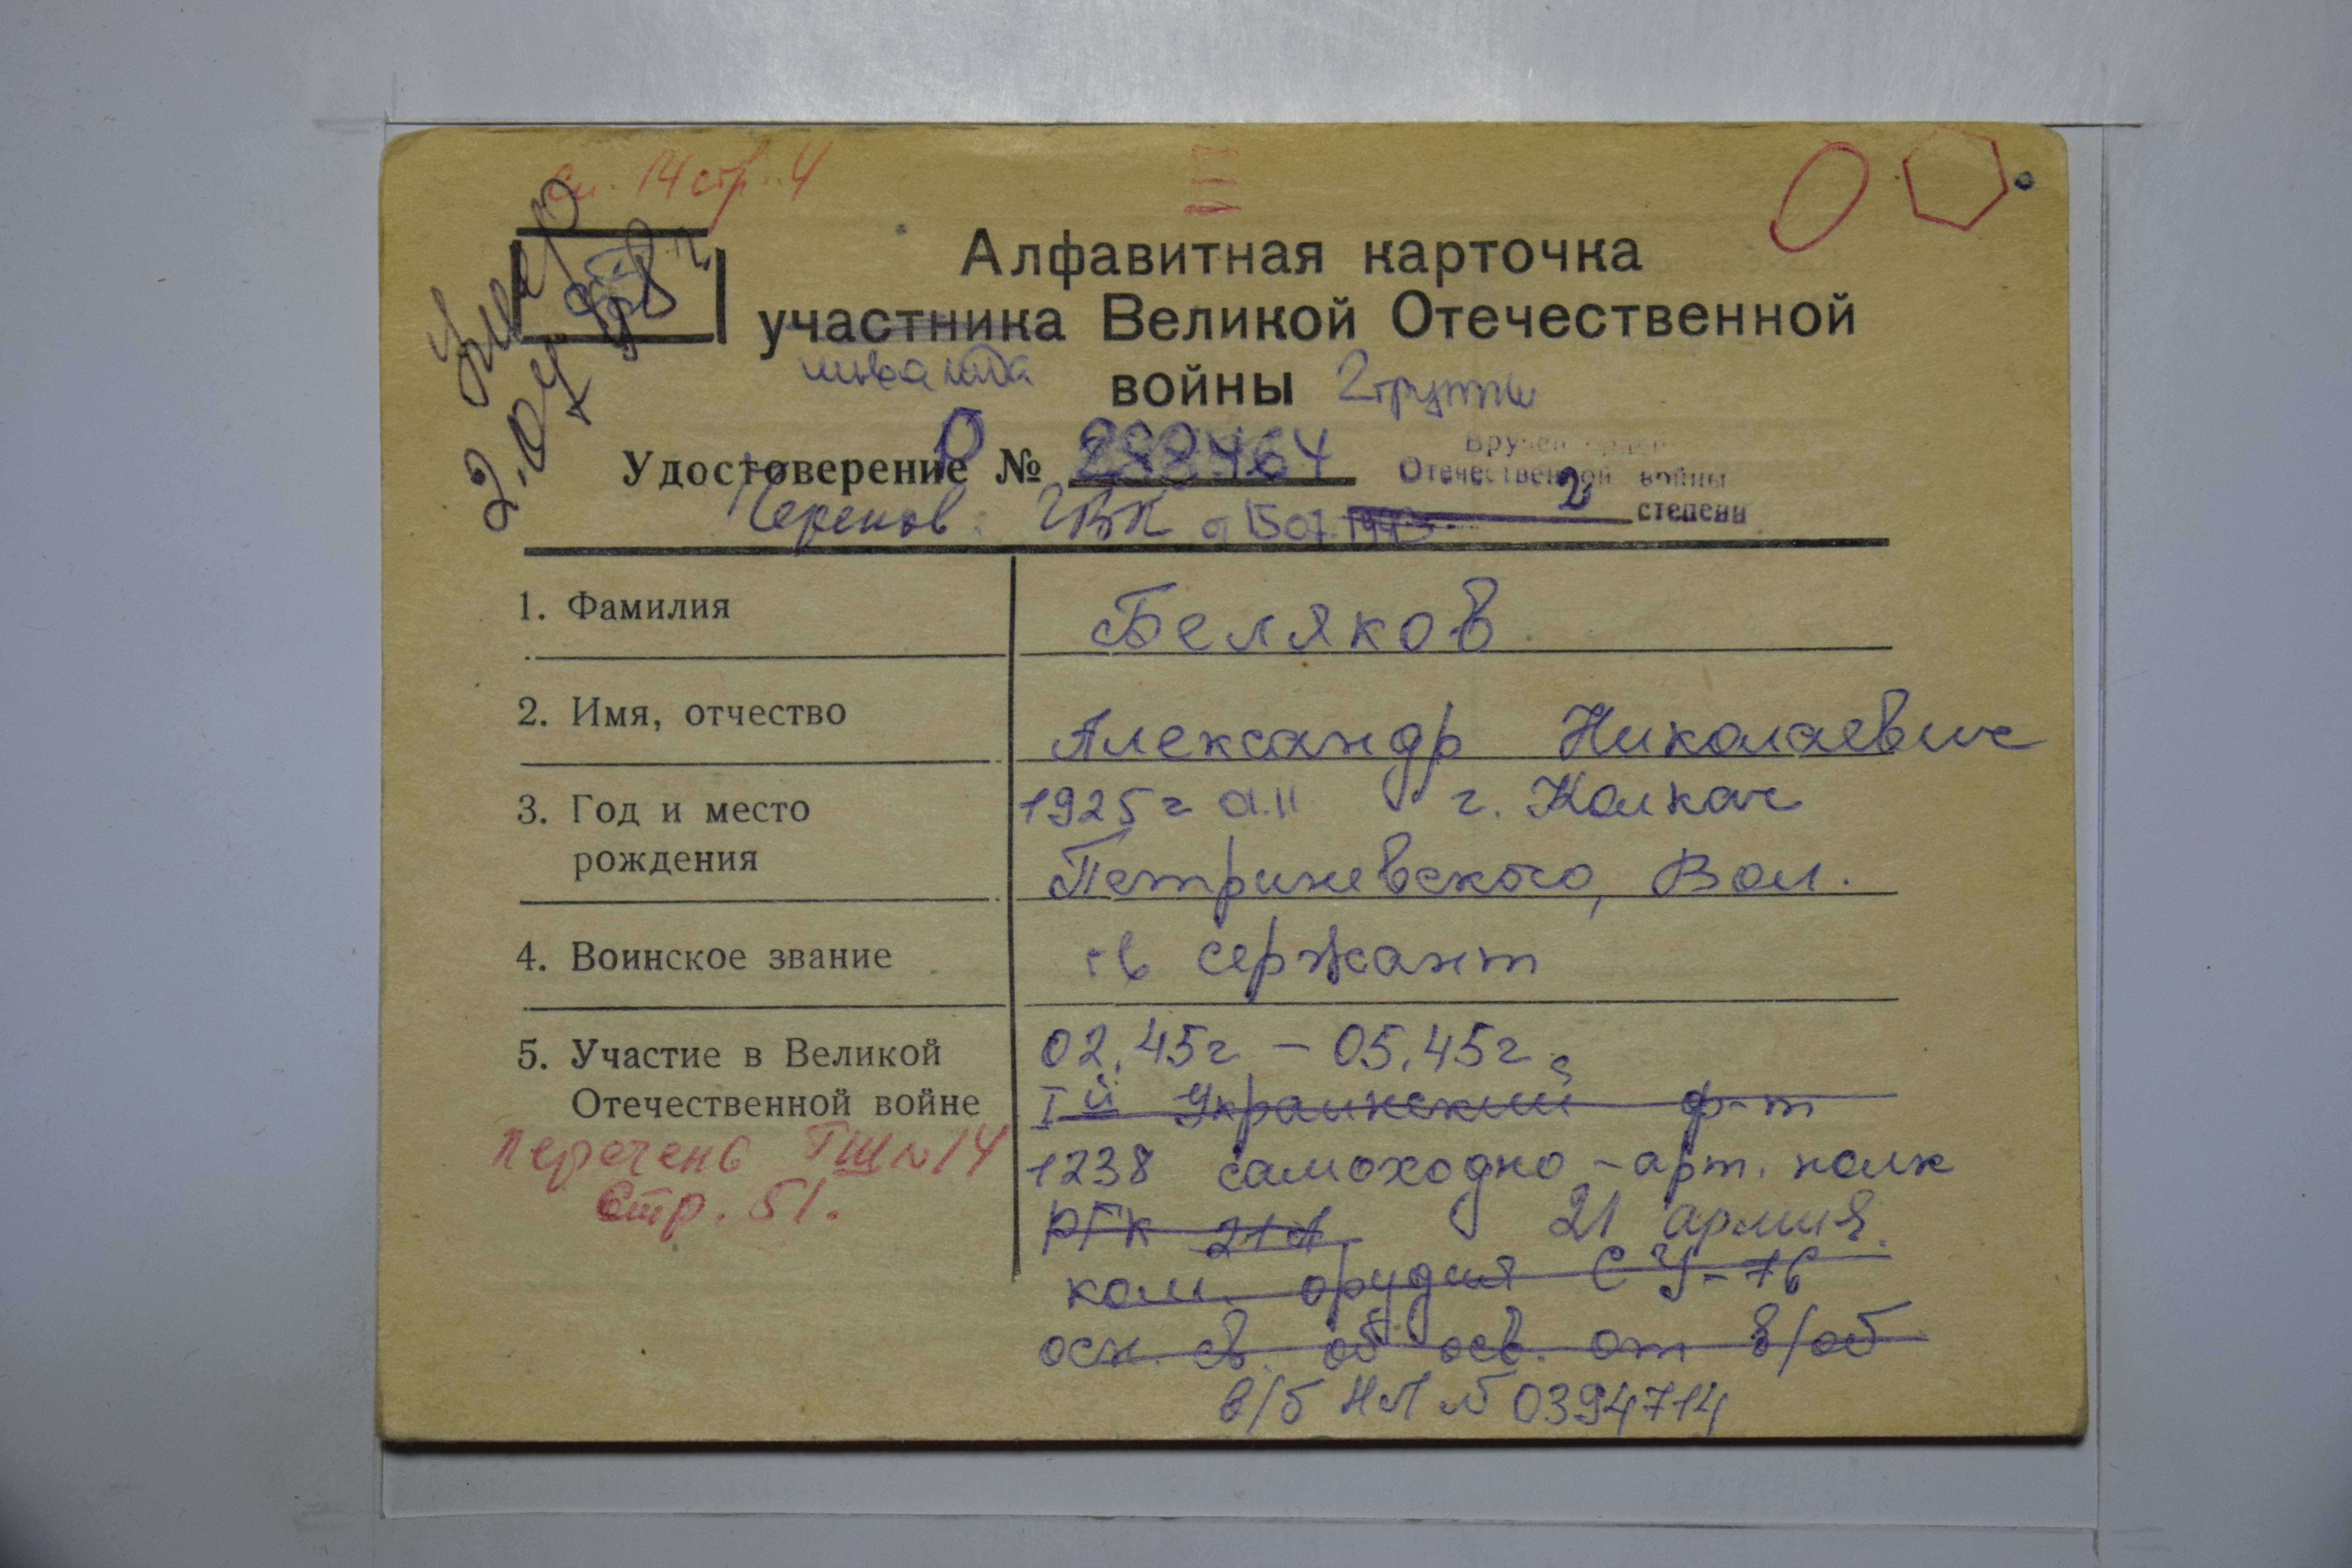 сп. 14 стр. 4
Умер
2.04
98г
Алфавитная карточка
участника Великой Отечественной
инвалида войны 2 группы
Удостоверение № 288464
Вручен
Отечественной войны
2 степени
Черепов. ГВК
1. Фамилия Беляков
2. Имя, отчество Александр Николаевич
3. Год и место рождения 1925г г. Калкач
Петриневского, Вол.
4. Воинское звание гв сержант
5. Участие в Великой Отечественной войне 02.45г – 05.45г.
Iй Украинский ф-т
Перечень ГШ №14
Стр. 51.
1238 самоходно-арт. полк
РГК 21А 21 армия.
ком. орудия СУ-76
осн. св. об осв. от в/об
в/б НЛ № 0394714